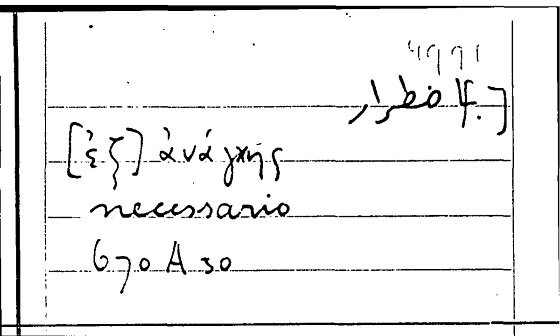 اضطرار
[ἐξ] ἀνάγκης
necessario
670 A 30